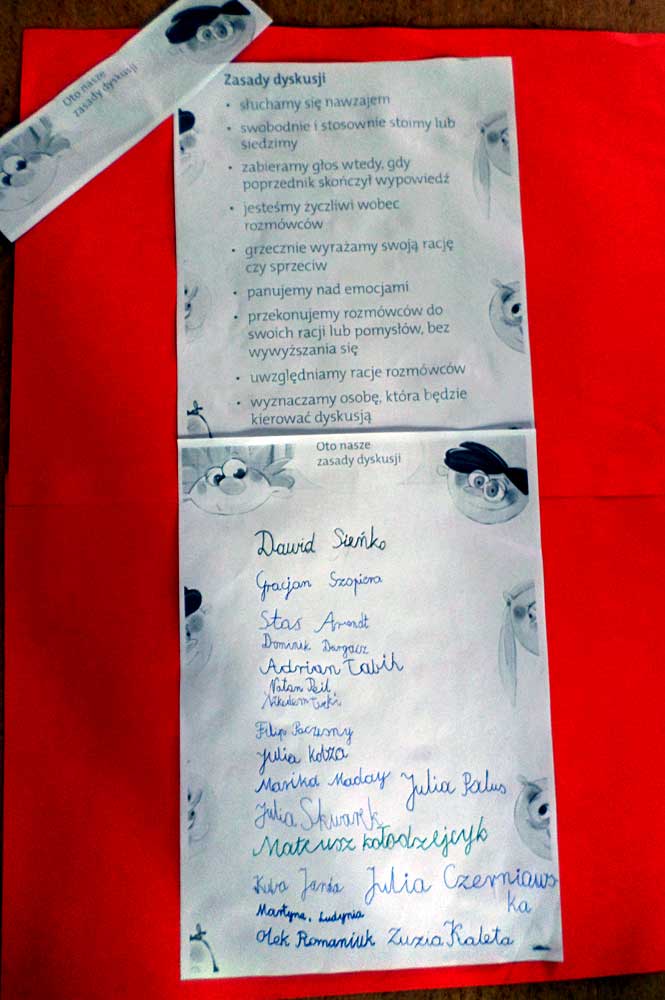 Oto nasze
zasady dyskusji
Zasady dyskusji
• słuchamy się nawzajem
• swobodnie i stosownie stoimy lub
siedzimy
• zabieramy głos wtedy, gdy
poprzednik skończył wypowiedź
• jesteśmy życzliwi wobec
rozmówców
• grzecznie wyrażamy swoją rację
czy sprzeciw
• panujemy nad emocjami
• przekonujemy rozmówców do
swoich racji lub pomysłów, bez
wywyższania się
• uwzględniamy racje rozmówców
• wyznaczamy osobę, która będzie
kierować dyskusją
Oto nasze
zasady dyskusji
Dawid Sieńko
Gracjan Szopiera
Staś Arendt
Dominik Dargacz
Adrian Tabik
Natan
Filip Paczesny
Julia Kobza
Marika Maday Julia Palus
Julia Skwarek
Mateusz Kołodziejczyk
Kuba Janda Julia Czerniaws
ka
Martyna, Ludynia
Olek Romaniuk Zuzia Kaleta